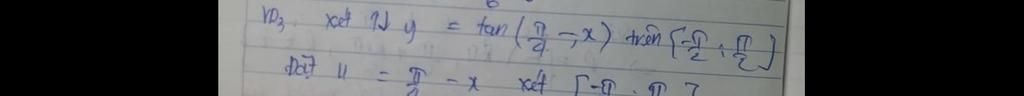 VD3 xét ↑↓ y = tan(π/4 - x) trên [-π/2; π/2]
Đặt u = π/4 - x xét [-π; π]